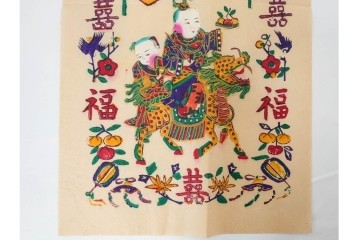 囍 囍
福 福
囍